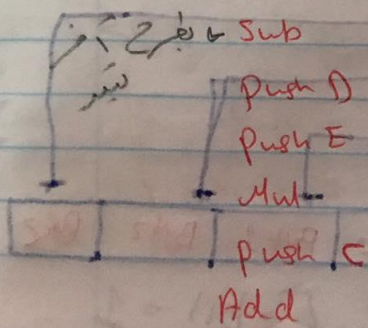 بطرح آخر Sub
push D
push E
Mul
push C
Add